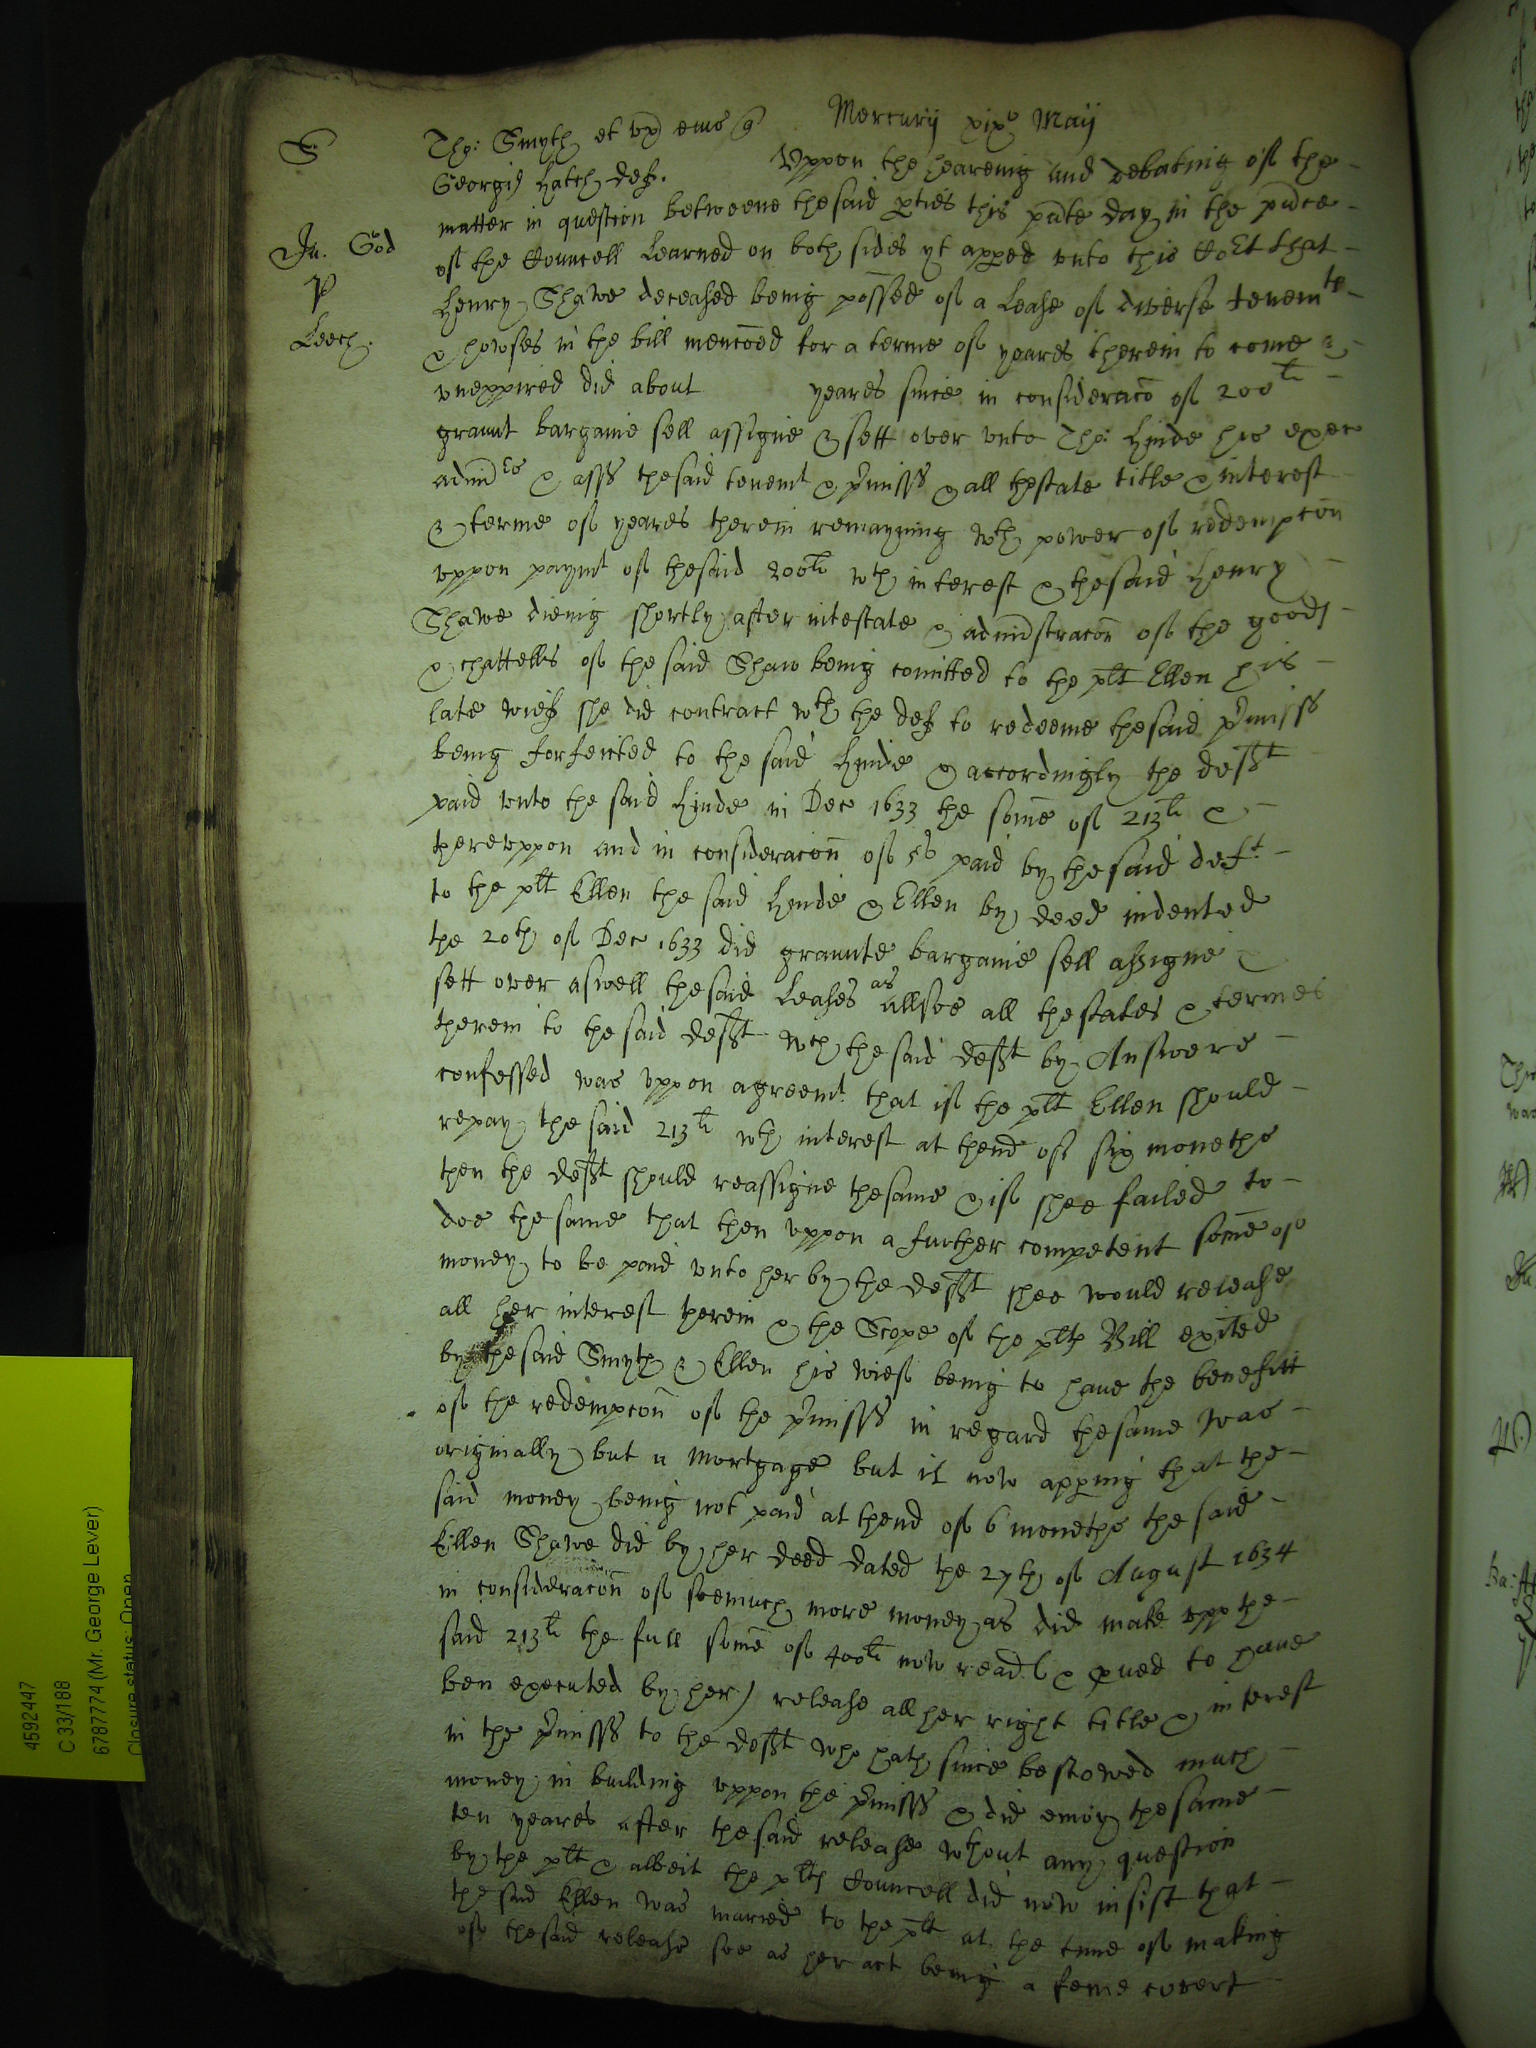 Mercurij xixo Maij
S
Tho: Smyth et ux eius q
Georgius Hatch def.
Uppon the heareing and debating of the
matter in question betweene thesaid pties this pnte day in the pnce
Ju. God
of the Councell Learned on both sides yt appred unto this Co:rt that
P
Henry Shawe deceased being possed of a Lease of diverse tenemts
Leech.
& howses in the bill mencoed for a terme of yeares therein to come &
unexpired did about yeares since in consideraco of 200li
graunt bargaine sell assigne & sett over unto Tho: Hinde his exec
admres & asss thesaid tenemt & pmisss & all thestate title & interest
& terme of yeares therein remayning wth power of redempcon
uppon paymt of thesaid 200li wth interest & thesaid Henry
Shawe dieing shortly after intestate & administracon of the goods
& chattells of the said Shaw being comitted to the plt Ellen his
late wief she did contract wth the def to redeeme thesaid pmisss
being forfeited to the said Hinde & accordingly the defft
paid unto the said Hinde in Dec 1633 the some of 213li &
thereuppon and in consideracon of 5s paid by thesaid deft
to the plt Ellen the said Hinde & Ellen by deed indented
the 20th of Dec 1633 did graunte bargaine sell assigne &
sett over aswell thesaid Leases as allsoe all thestates & termes
therein to the said defft wch thesaid defft by Answere
confessed was uppon agreemt that if the plt Ellen should
repay the said 213li wth interest at thend of six moneths
then the defft should reassigne thesame & if shee failed to
doe thesame that then uppon a further competent some of
money to be paid unto her by the defft shee would release
all her interest therein & the Scope of the plts Bill exited
by thesaid Smyth & Ellen his wief being to have the benefitt
of the redempcon of the pmisss in regard thesame was
originally but a Mortgage but it now appring that the
said money being not paid at thend of 6 moneths the said
Ellen Shawe did by her deed dated the 27th of August 1634
in consideracon of soemuch more money as did make upp the
said 213li the full some of 400li now read & pved to have
ben executed by her) release all her right title & interest
in the pmisss to the defft who hath since bestowed much
money in building uppon the pmisss & did enioy thesame
ten yeares after thesaid release wthout any question
by the plt & albeit the plts Councell did now insist that
the said Ellen was maried to the plt at the time of making
of thesaid release soe as her act being a feme covert
4592447
C 33/188
6787774 (Mr. George Lever)
Closure status: Open